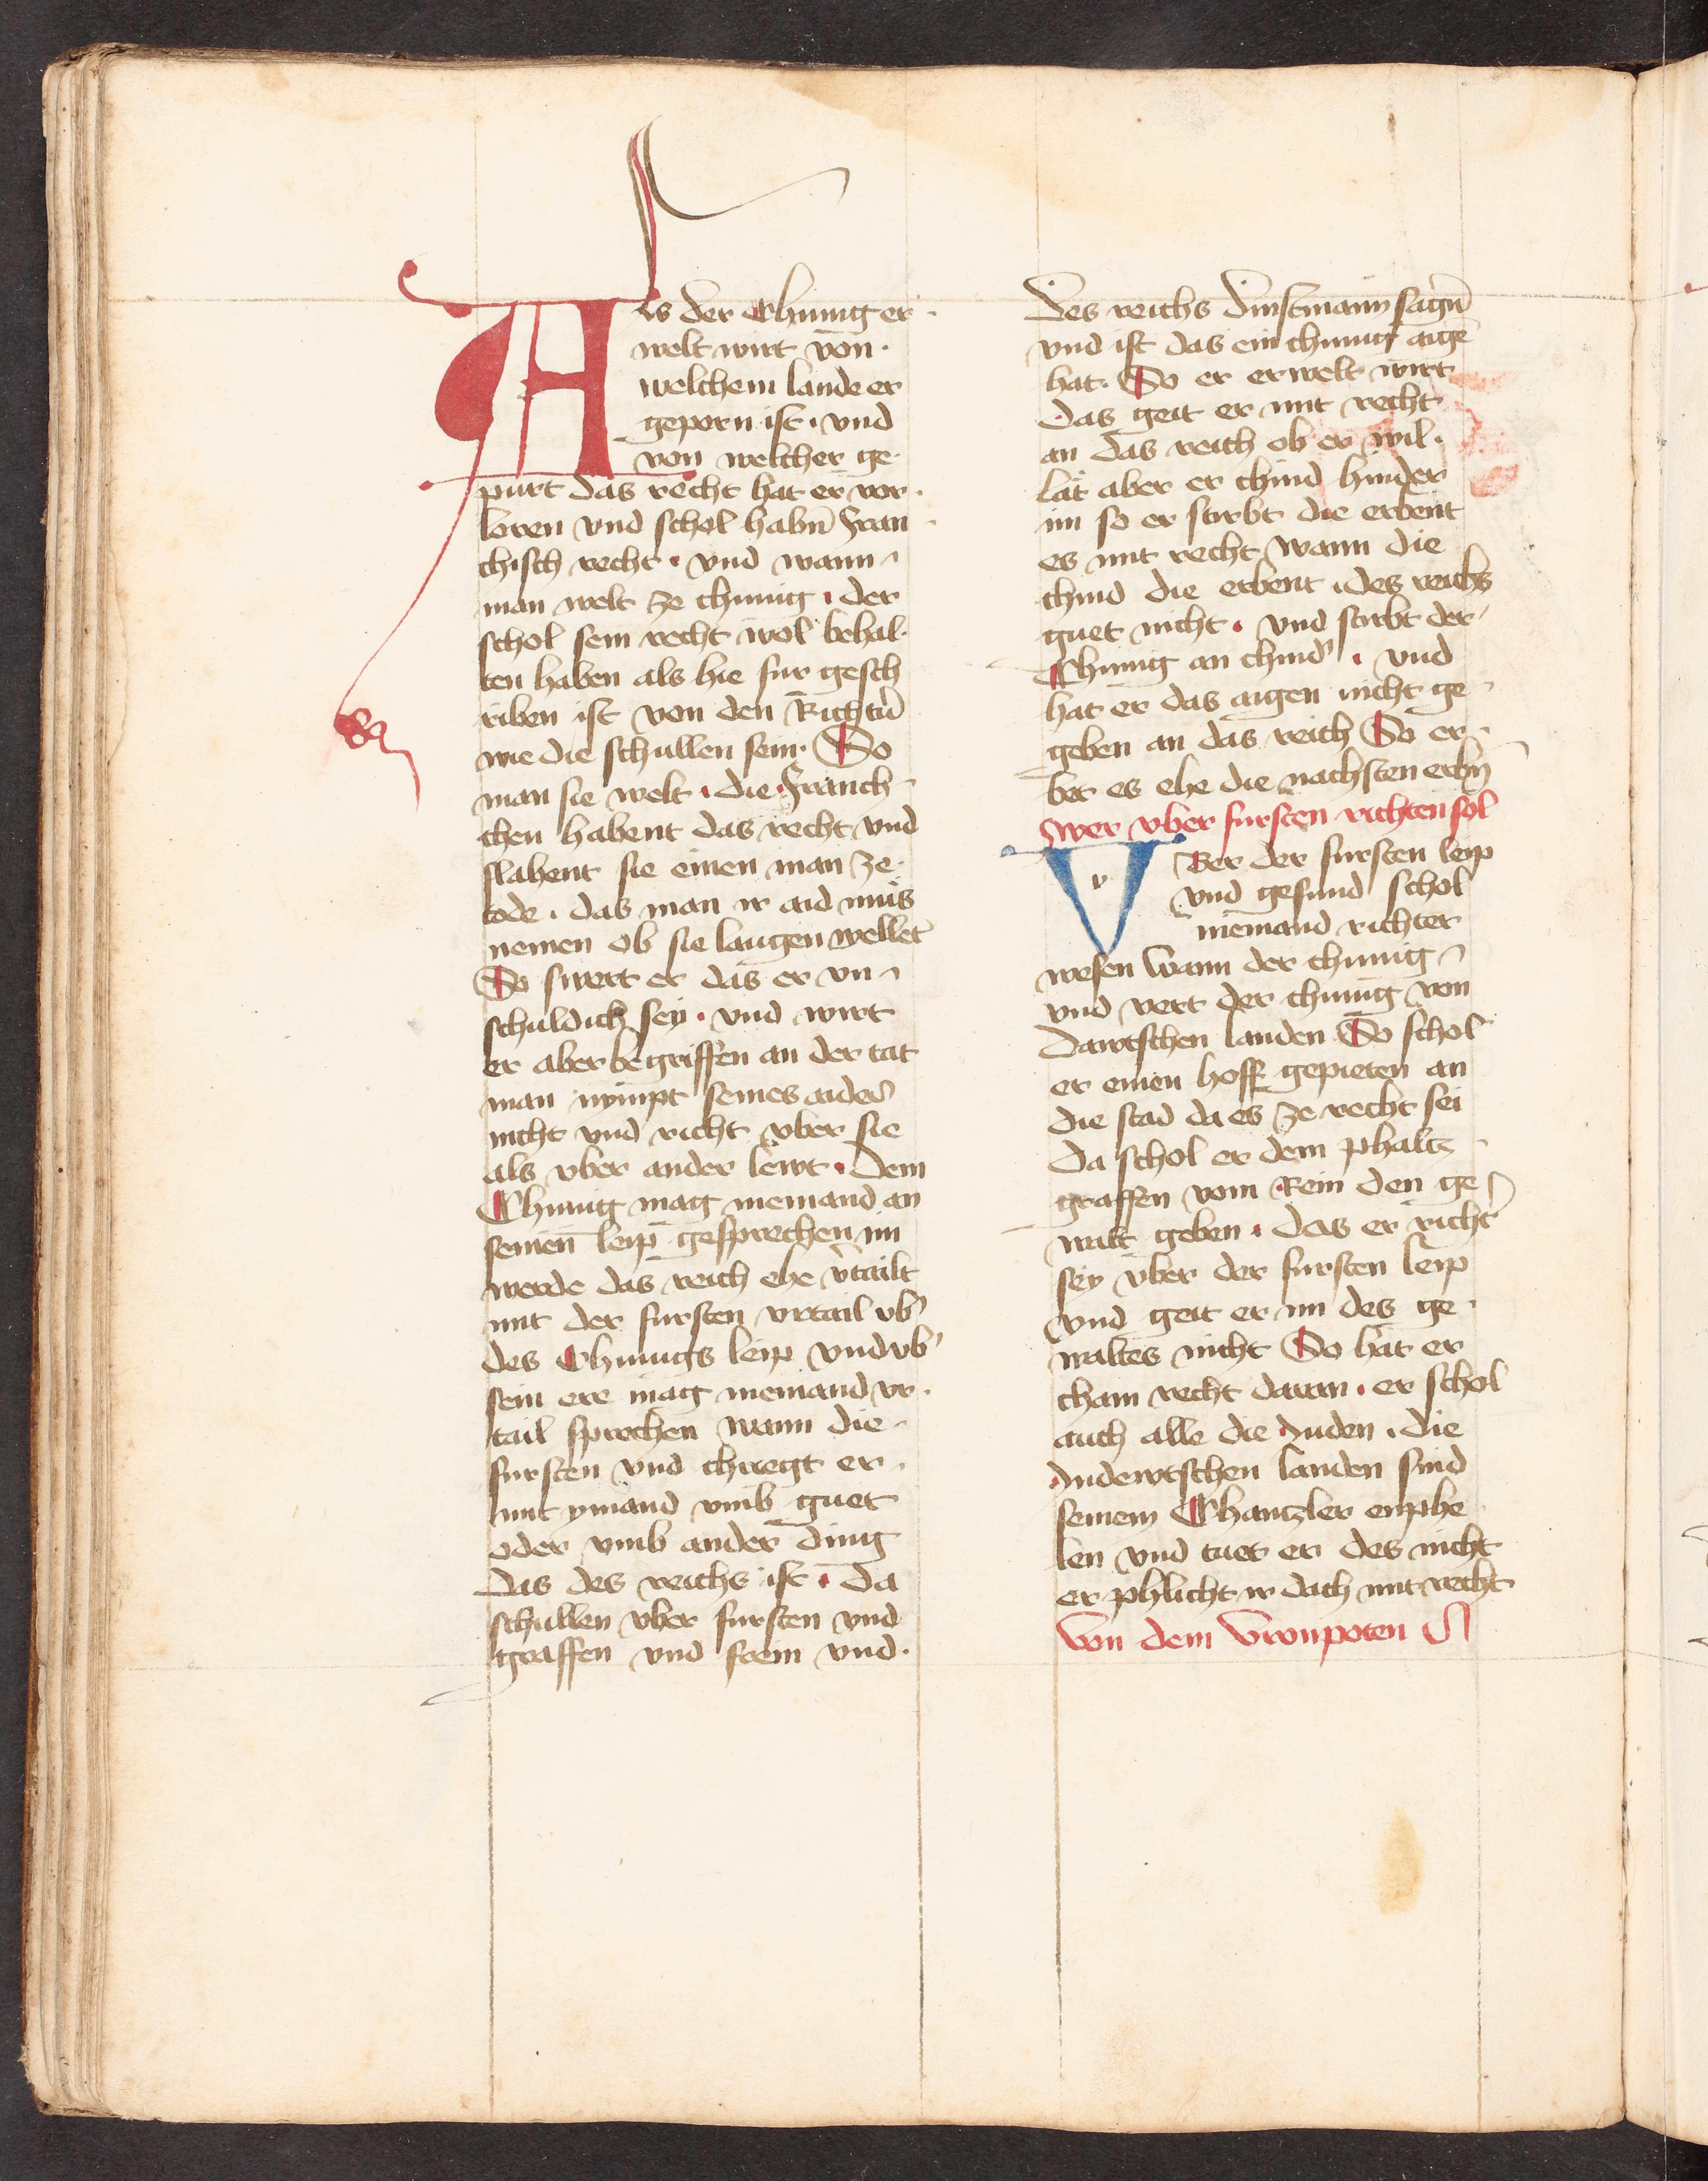 Als der Chunig er-
welt wirt von
welchem lande er
geporn ist · vnd
von welcher ge-
purt das recht hat er vor-
loren vnd schol habn̄ Fran-
chisch recht · vnd wann
man welt ze chunig · der
schol sein recht wol behal-
ten haben als hie fur gesch
riben ist von den Richtn̄
wie die schullen sein · So
man sie welt · die Franch-
chen habent das recht vnd
slahent sie einen man ze
tode · das man ir aid mus
nemen ob sie laugen wellēt
So swert er das er vn-
schuldich sey · vnd wirt
er aber begriffen an der tat
man nympt seines aides
nicht vnd richt vber sie
als vber ander lewt · Dem
Chunig mag niemand an
seinen leip gesprechen im
werde das reich ehe v̄tailt
mit der fursten vrtail vb̄
des Chunigs leip vnd vb̄
sein ere mag niemand vr-
tail sprechen wann die
fursten vnd chriegt er
mit ymand vmb guet
oder vmb ander ding
das des reichs ist · Da
schullen vber fursten vnd
graffen vnd frein vnd
des reichs dinstmann sagn̄
vnd ist das ein chunig aigē
hat · So er erwelt wirt
das geit er mit recht
an das reich ob er wil ·
lät aber er chind hinder
im so er stirbt die erbent
es mit recht wann die
chind die erbent · des reichs
guet nicht · vnd stirbt der
Chunig an chind · vnd
hat er das aigen nicht ge-
geben an das reich So er-
bet es ehe die nachsten erbn̄
Swer vber fursten richten sol
V Ber der fursten leip
vnd gesund schol
niemand richter
wesen wann der chunig
vnd vert der chunig von
dawtschen landen So schol
er einen hoff gepieten an
die stad da es ze recht sei
Da schol er dem phaltz-
graffen vom Rein den ge-
walt geben · das er richt̄
sey vber der fursten leip
vnd geit er im des ge-
waltes nicht So hat er
chain recht daran · er schol
auch alle die Juden · die
In dewtschen landen sind
seinem Chantzler emphe-
len vnd tuet er des nicht
er phlicht ir dach mit recht
Von dem vronpoten